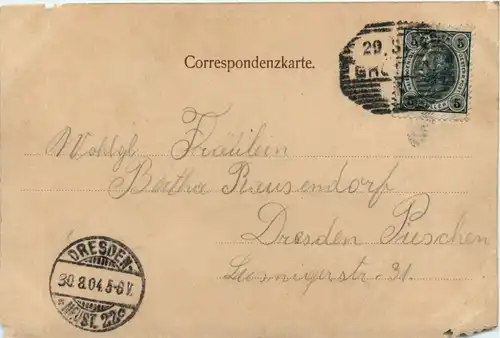 Correspondenzkarte.
29. 8.
5 5
5 5
Wohlgl Fräulein
Bertha Rausendorf
Dresden Pieschen
Leisnigerstr. 31.
DRESDEN-
30.8.04.5-6V.
NEUST. 22c